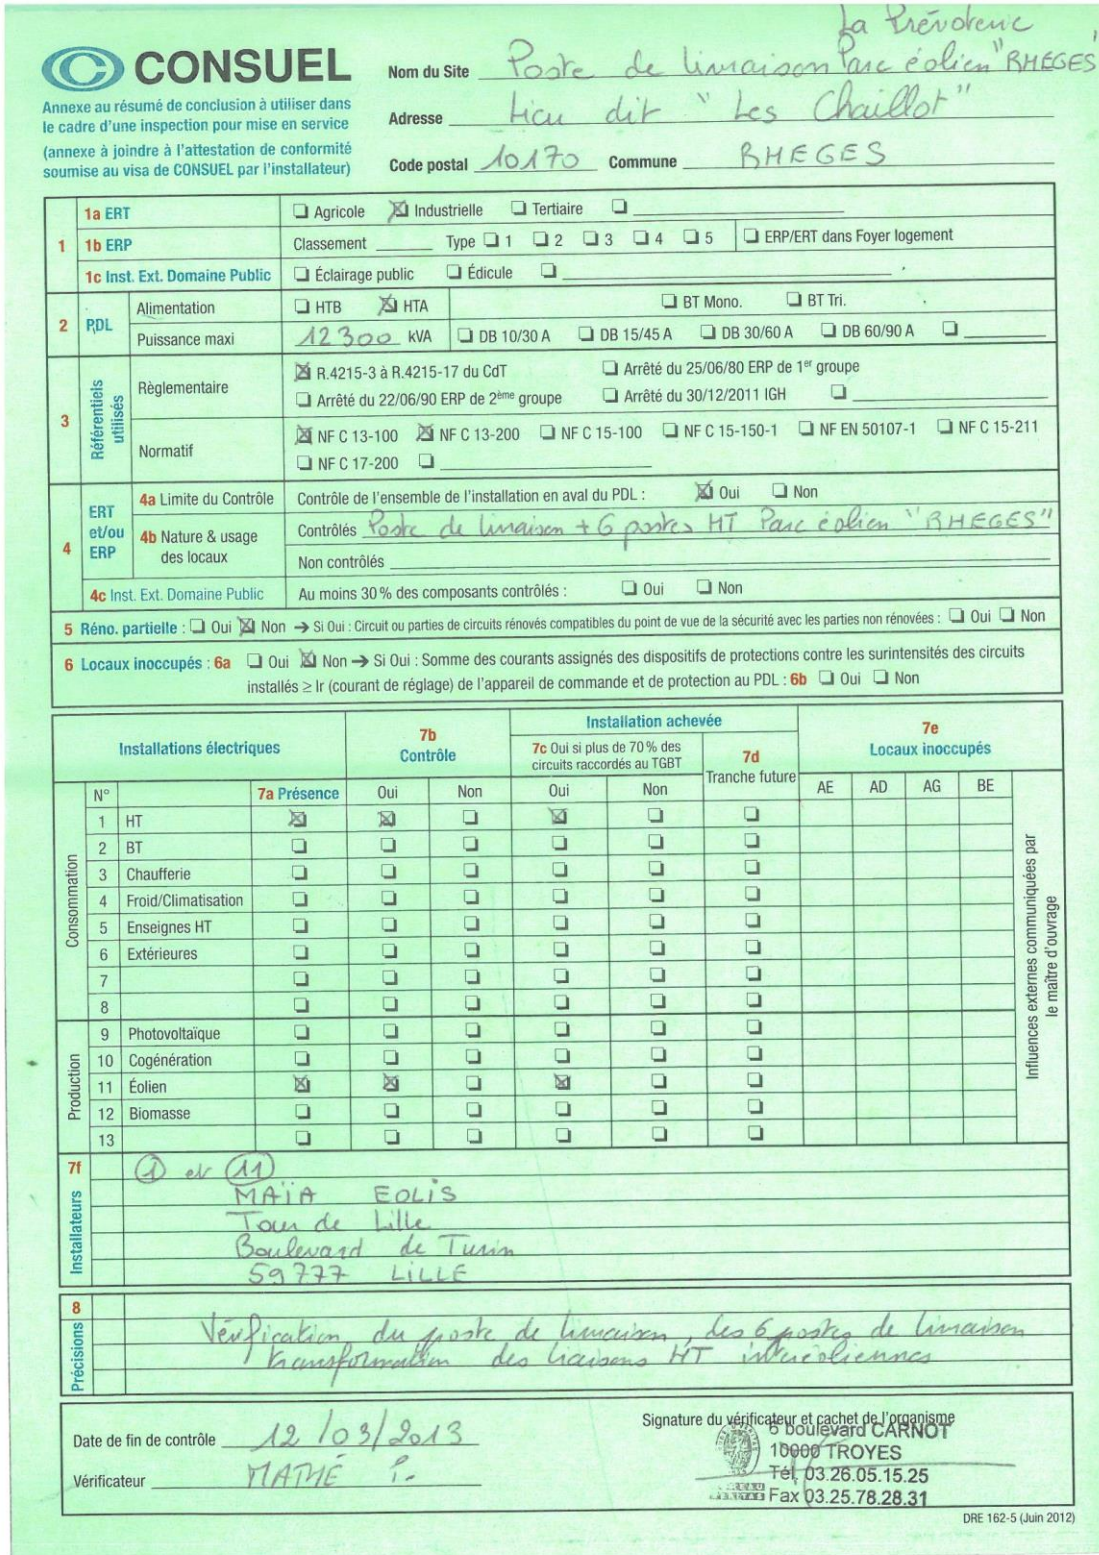 La Prévoterie
CONSUEL
Nom du Site Poste de livraison Parc éolien "RHEGES"
Annexe au résumé de conclusion à utiliser dans
le cadre d'une inspection pour mise en service
(annexe à joindre à l'attestation de conformité
soumise au visa de CONSUEL par l'installateur)
Adresse Lieu dit "Les Chaillot"
Code postal 10170 Commune RHEGES
1
1a ERT Agricole Industrielle Tertiaire
1b ERP Classement Type 1 2 3 4 5 ERP/ERT dans Foyer logement
1c Inst. Ext. Domaine Public Éclairage public Édicule
2 PDL
Alimentation HTB HTA BT Mono. BT Tri.
Puissance maxi 12300 kVA DB 10/30 A DB 15/45 A DB 30/60 A DB 60/90 A
3 Référentiels utilisés
Règlementaire
R.4215-3 à R.4215-17 du CdT Arrêté du 25/06/80 ERP de 1er groupe
Arrêté du 22/06/90 ERP de 2ème groupe Arrêté du 30/12/2011 IGH
Normatif
NF C 13-100 NF C 13-200 NF C 15-100 NF C 15-150-1 NF EN 50107-1 NF C 15-211
NF C 17-200
4 ERT et/ou ERP
4a Limite du Contrôle Contrôle de l'ensemble de l'installation en aval du PDL : Oui Non
4b Nature & usage des locaux
Contrôlés Poste de livraison + 6 postes HT Parc éolien "RHEGES"
Non contrôlés
4c Inst. Ext. Domaine Public Au moins 30 % des composants contrôlés : Oui Non
5 Réno. partielle : Oui Non → Si Oui : Circuit ou parties de circuits rénovés compatibles du point de vue de la sécurité avec les parties non rénovées : Oui Non
6 Locaux inoccupés : 6a Oui Non → Si Oui : Somme des courants assignés des dispositifs de protections contre les surintensités des circuits
installés ≥ Ir (courant de réglage) de l'appareil de commande et de protection au PDL : 6b Oui Non
Installations électriques
7b Contrôle
Installation achevée
7c Oui si plus de 70 % des circuits raccordés au TGBT
7d Tranche future
7e Locaux inoccupés
N° 7a Présence Oui Non Oui Non AE AD AG BE
Consommation
1 HT
2 BT
3 Chaufferie
4 Froid/Climatisation
5 Enseignes HT
6 Extérieures
7
8
Production
9 Photovoltaïque
10 Cogénération
11 Éolien
12 Biomasse
13
Influences externes communiquées par
le maître d'ouvrage
7f Installateurs
1 et 11
MAÏA EOLIS
Tour de Lille
Boulevard de Turin
59777 LILLE
8 Précisions
Vérification du poste de livraison, des 6 postes de livraison
transformation des liaisons HT interéoliennes
Date de fin de contrôle 12/03/2013
Vérificateur MATHÉ P.
Signature du vérificateur et cachet de l'organisme
6 boulevard CARNOT
10000 TROYES
Tél. 03.26.05.15.25
BUREAU VERITAS
Fax 03.25.78.28.31
DRE 162-5 (Juin 2012)